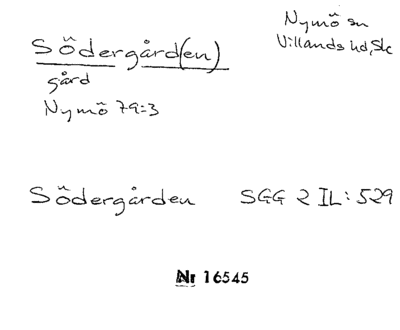 Södergård(en)
gård
Nymö 79:3
Nymö sn
Villands hd, Sk
Södergården SGG 2 IL: 529
Nr 16545